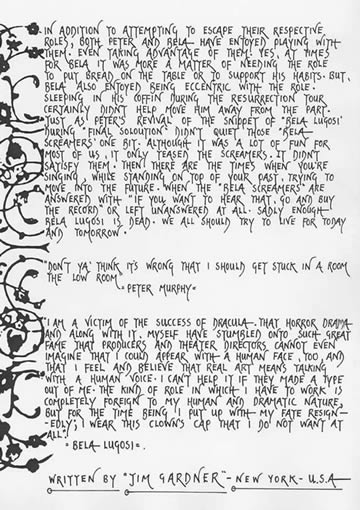 IN ADDITION TO ATTEMPTING TO ESCAPE THEIR RESPECTIVE
ROLES, BOTH PETER AND BELA HAVE ENJOYED PLAYING WITH
THEM. EVEN TAKING ADVANTAGE OF THEM! YES, AT TIMES
FOR BELA IT WAS MORE A MATTER OF NEEDING THE ROLE
TO PUT BREAD ON THE TABLE OR TO SUPPORT HIS HABITS. BUT,
BELA ALSO ENJOYED BEING ECCENTRIC WITH THE ROLE.
SLEEPING IN HIS COFFIN DURING THE RESURRECTION TOUR
CERTAINLY DIDN'T HELP MOVE HIM AWAY FROM THE PART.
JUST AS PETER'S REVIVAL OF THE SNIPPET OF "BELA LUGOSI"
DURING "FINAL SOLOUTION" DIDN'T QUIET THOSE "BELA
SCREAMERS" ONE BIT. ALTHOUGH IT WAS A LOT OF FUN FOR
MOST OF US, IT ONLY TEASED THE SCREAMERS. IT DIDN'T
SATISFY THEM. THEN THERE ARE THE TIMES WHEN YOU'RE
SINGING, WHILE STANDING ON TOP OF YOUR PAST, TRYING TO
MOVE INTO THE FUTURE. WHEN THE "BELA SCREAMERS" ARE
ANSWERED WITH "IF YOU WANT TO HEAR THAT, GO AND BUY
THE RECORD" OR LEFT UNANSWERED AT ALL. SADLY ENOUGH-
BELA LUGOSI IS DEAD. WE ALL SHOULD TRY TO LIVE FOR TODAY
AND TOMORROW.
"DON'T YA' THINK IT'S WRONG THAT I SHOULD GET STUCK IN A ROOM
THE LOW ROOM"
"PETER MURPHY"
"I AM A VICTIM OF THE SUCCESS OF DRACULA. THAT HORROR DRAMA
AND ALONG WITH IT, MYSELF HAVE STUMBLED ONTO SUCH GREAT
FAME THAT PRODUCERS AND THEATER DIRECTORS CANNOT EVEN
IMAGINE THAT I COULD APPEAR WITH A HUMAN FACE, TOO, AND
THAT I FEEL AND BELIEVE THAT REAL ART MEANS TALKING
WITH A HUMAN VOICE. I CAN'T HELP IT IF THEY MADE A TYPE
OUT OF ME. THE KIND OF ROLE IN WHICH I HAVE TO WORK IS
COMPLETELY FOREIGN TO MY HUMAN AND DRAMATIC NATURE,
BUT FOR THE TIME BEING I PUT UP WITH MY FATE RESIGN-
-EDLY; I WEAR THIS CLOWN'S CAP THAT I DO NOT WANT AT
ALL."
"BELA LUGOSI".
WRITTEN BY "JIM GARDNER" - NEW YORK - U.S.A